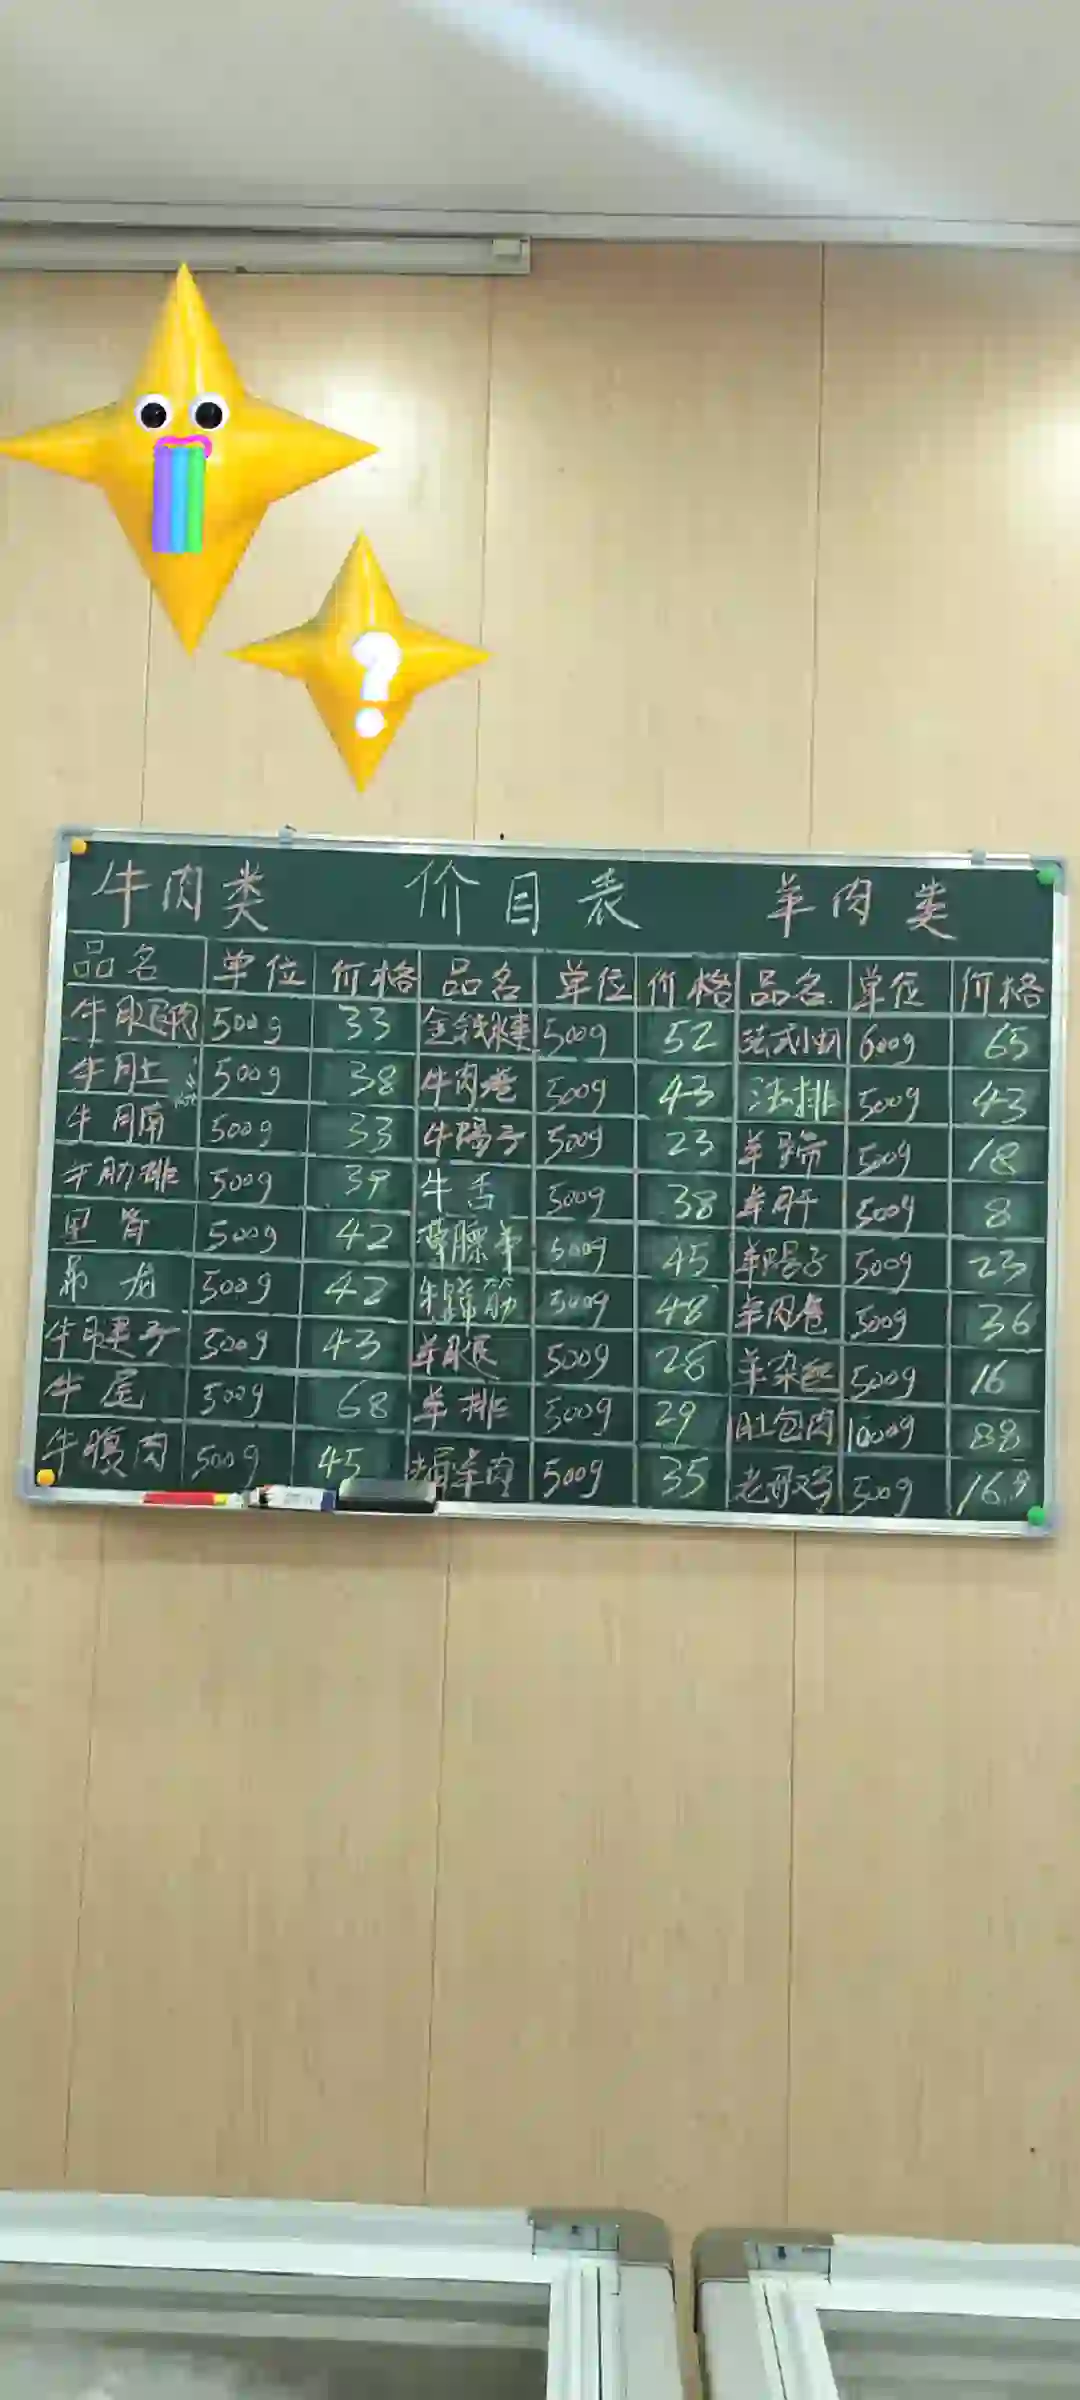 ?
牛肉类 价目表 羊肉类
品名 单位 价格 品名 单位 价格 品名 单位 价格
牛腿肉 500g 33 金钱腱 500g 52 法式小切 600g 65
牛肚 500g 38 牛肉卷 500g 43 法排 500g 43
牛腩 500g 33 牛腸子 500g 23 羊蹄 500g 18
牛肋排 500g 39 牛舌 500g 38 羊肝 500g 8
里脊 500g 42 500g 45 羊腸子 500g 23
吊龙 500g 42 牛蹄筋 500g 48 羊肉卷 500g 36
牛腱子 500g 43 羊腿 500g 28 羊杂 500g 16
牛尾 500g 68 羊排 500g 29 肚包肉 1000g 88
牛腹肉 500g 45 羊肉 500g 35 老母鸡 500g 16.9